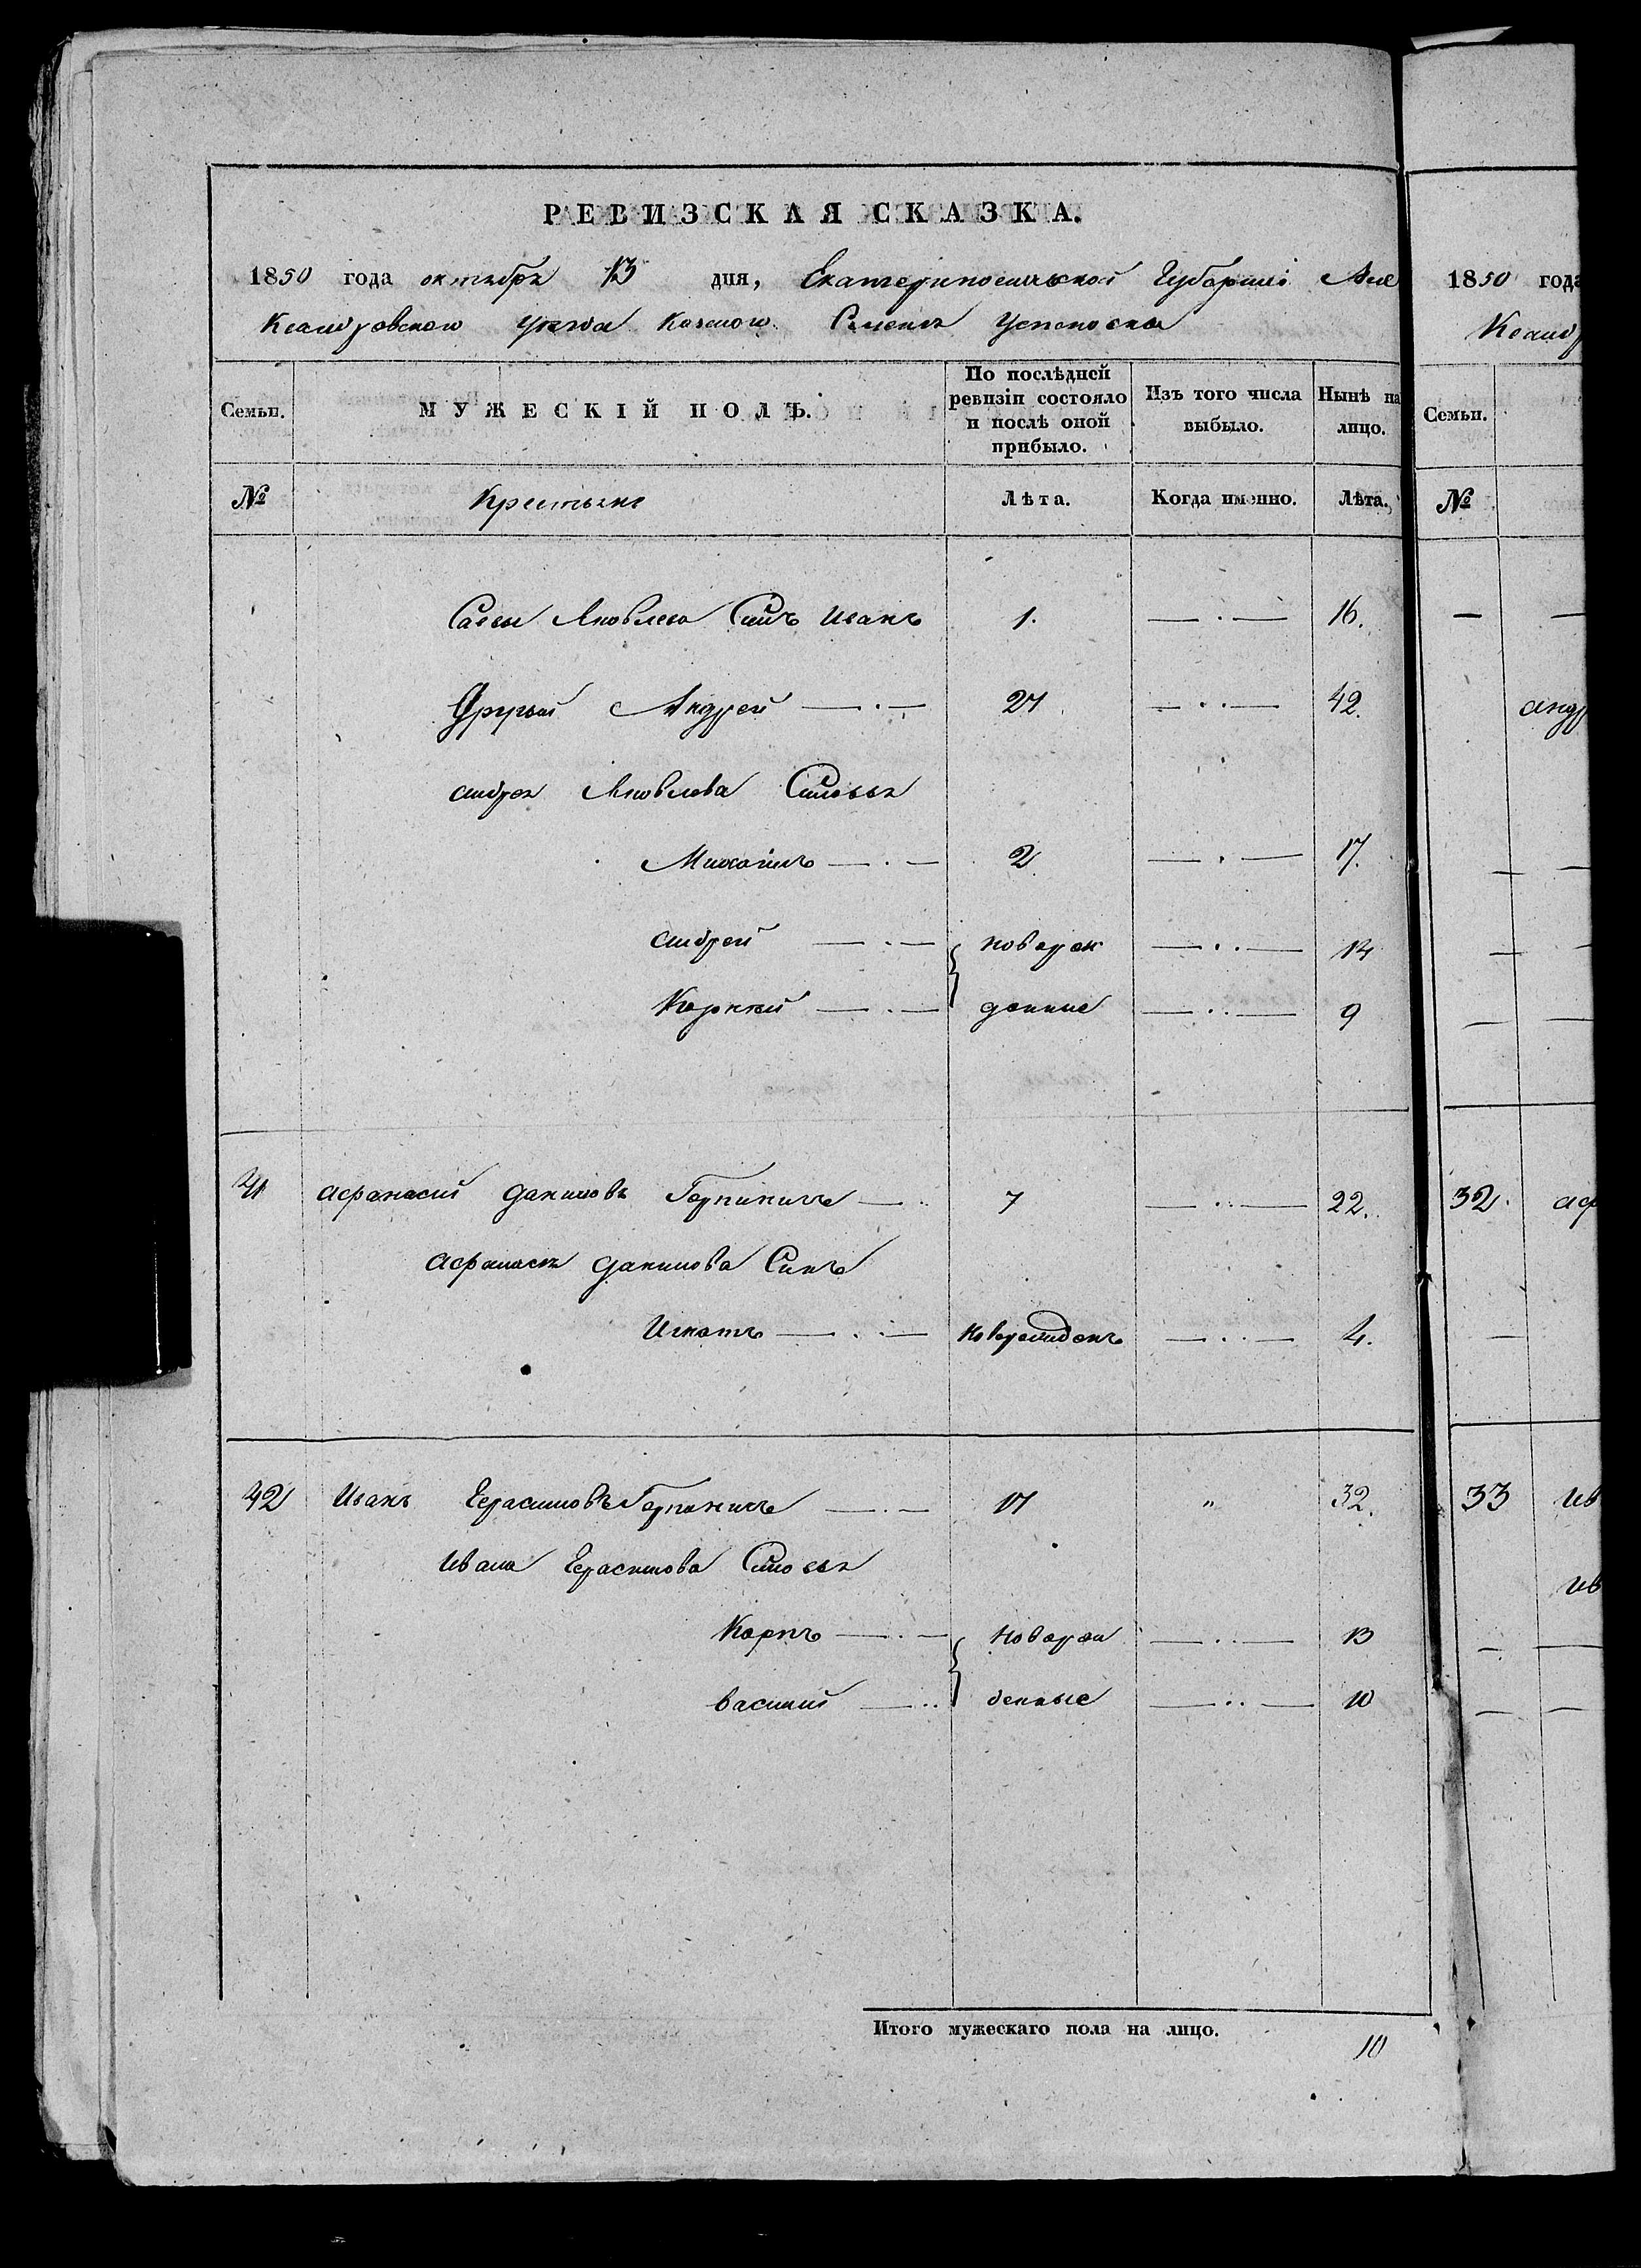 РЕВИЗСКАЯ СКАЗКА.
1850 года октября 13 дня, Екатеринославской Губерніи Але
ксандровского Уезда Казеного Селенія Успеновка
Семьи. МУЖЕСКІЙ ПОЛЪ. По послѣдней ревизіи состояло и послѣ оной прибыло. Изъ того числа выбыло. Нынѣ на лицо.
№ Крестьяне Лѣта. Когда именно. Лѣта.
Савы Яковлева Сынъ Иванъ 1. — . — 16.
Другый Андрей — . — 27 — . . — 42.
андрея Яковлева Сыновья
Михаилъ — . — 2 — . — 17.
андрей — . — новорож — . . — 14
Корней — . — денные — . . — 9
41 Афанасий даниловъ — . . 7 — . . — 22.
Афанасия данилова Сынъ
Игнатъ — . . — новорожденъ — . . — 4.
42 Иванъ Герасимовъ — . — 17 " 32.
Ивана Герасимова Сыновья
Карпъ — . — новорож — . . — 13
василий — . . денные — . . — 10
Итого мужескаго пола на лицо.
10
1850 года
Ксанд
Семьи.
№
— —
андр
— —
— —
— —
32. аф
—
33 ив
ив
— —
— —